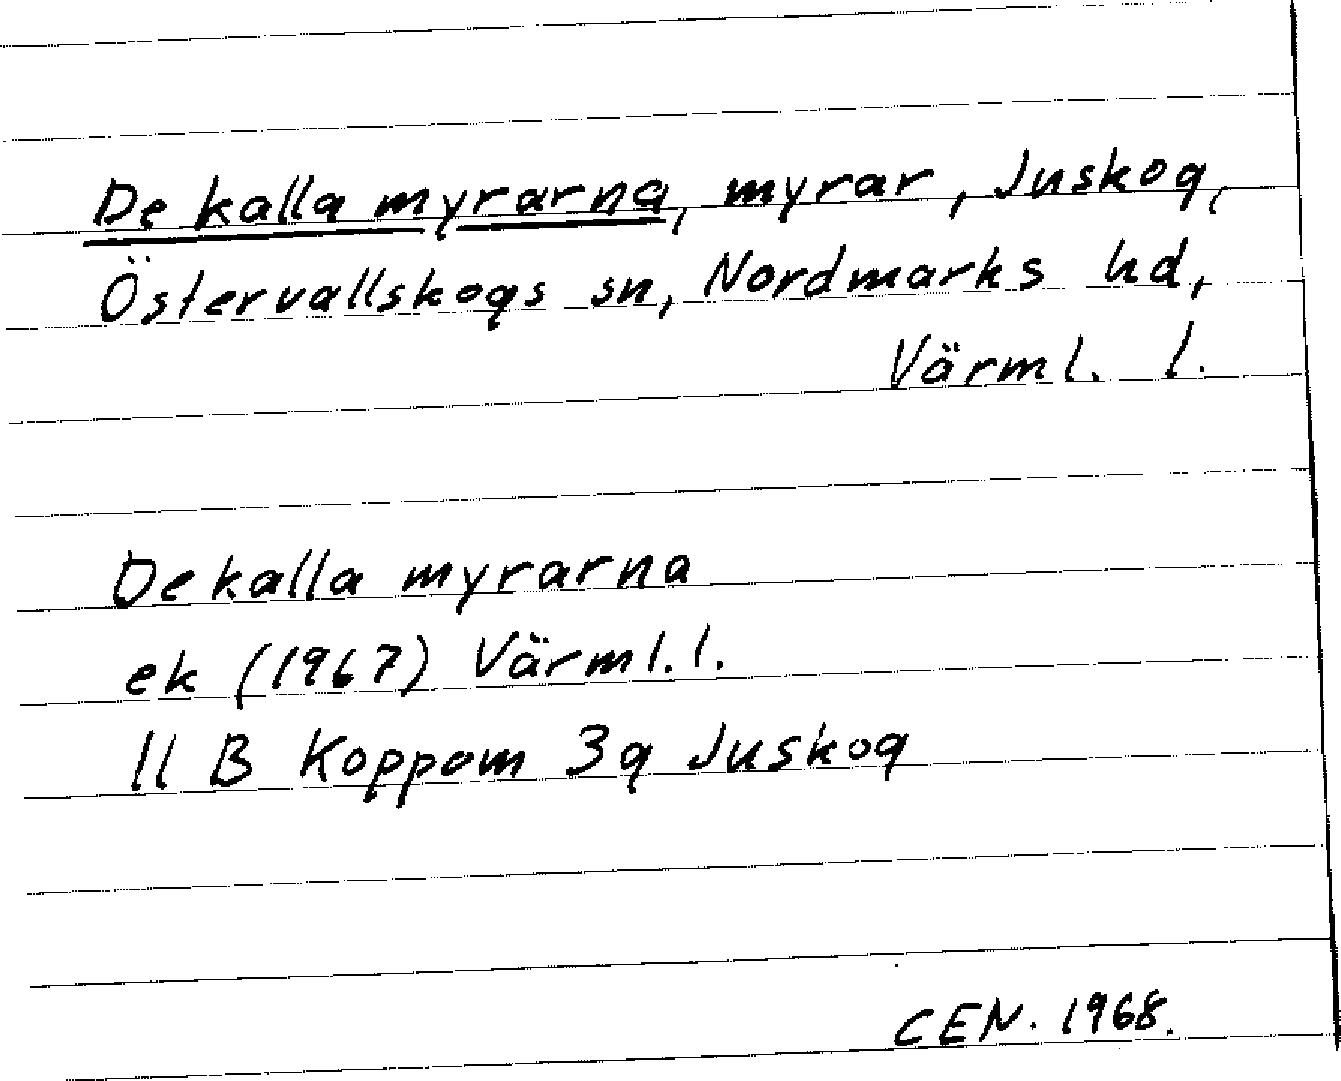 De kalla myrarna, myrar, Juskog,
Östervallskogs sn, Nordmarks hd,
Värml. l.
De kalla myrarna
ek (1967) Värml. l.
11 B Koppom 3g Juskog
CEN. 1968.